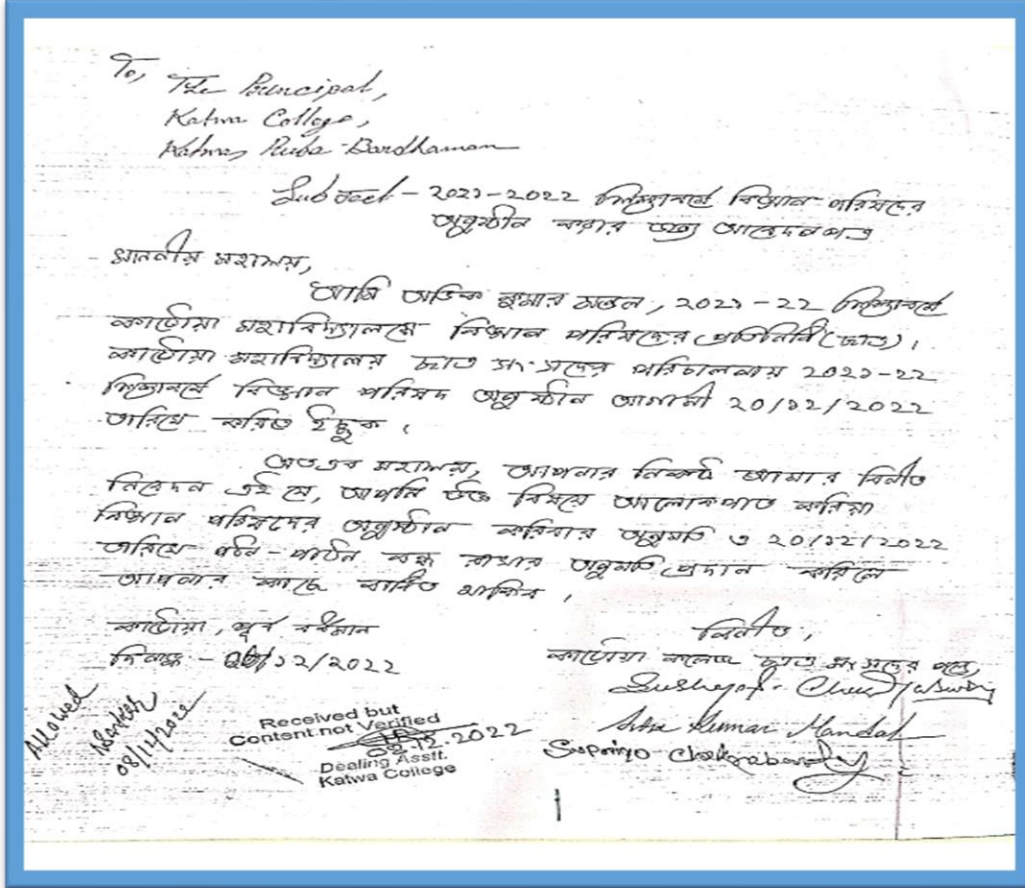 To,
The Principal,
Katwa College,
Katwa, Purba-Bardhaman
Subject - ২০২১-২০২২ শিক্ষাবর্ষে বিজ্ঞান পরিষদের
অনুষ্ঠান করার জন্য আবেদনপত্র
মাননীয় মহাশয়,
আমি অভিক কুমার মন্ডল, ২০২১-২২ শিক্ষাবর্ষে
কাটোয়া মহাবিদ্যালয়ে বিজ্ঞান পরিষদের প্রতিনিধি (ছাত্র)।
কাটোয়া মহাবিদ্যালয় ছাত্র সংসদের পরিচালনায় ২০২১-২২
শিক্ষাবর্ষে বিজ্ঞান পরিষদ অনুষ্ঠান আগামী ২০/১২/২০২২
তারিখে করিতে ইচ্ছুক।
অতএব মহাশয়, আপনার নিকট আমার বিনীত
নিবেদন এই যে, আপনি উক্ত বিষয়ে আলোকপাত করিয়া
বিজ্ঞান পরিষদের অনুষ্ঠান করিবার অনুমতি ও ২০/১২/২০২২
তারিখে পঠন-পাঠন বন্ধ রাখার অনুমতি প্রদান করিলে
আপনার কাছে বাধিত থাকিব।
কাটোয়া, পূর্ব বর্ধমান
দিনাঙ্ক - /১২/২০২২
বিনীত,
কাটোয়া কলেজ ছাত্র সংসদের পক্ষে,
Kumar Mandal
Supriyo Chakraborty
Allowed
08/12/2022
Received but
Content not Verified
08.12.2022
Dealing Asstt.
Katwa College